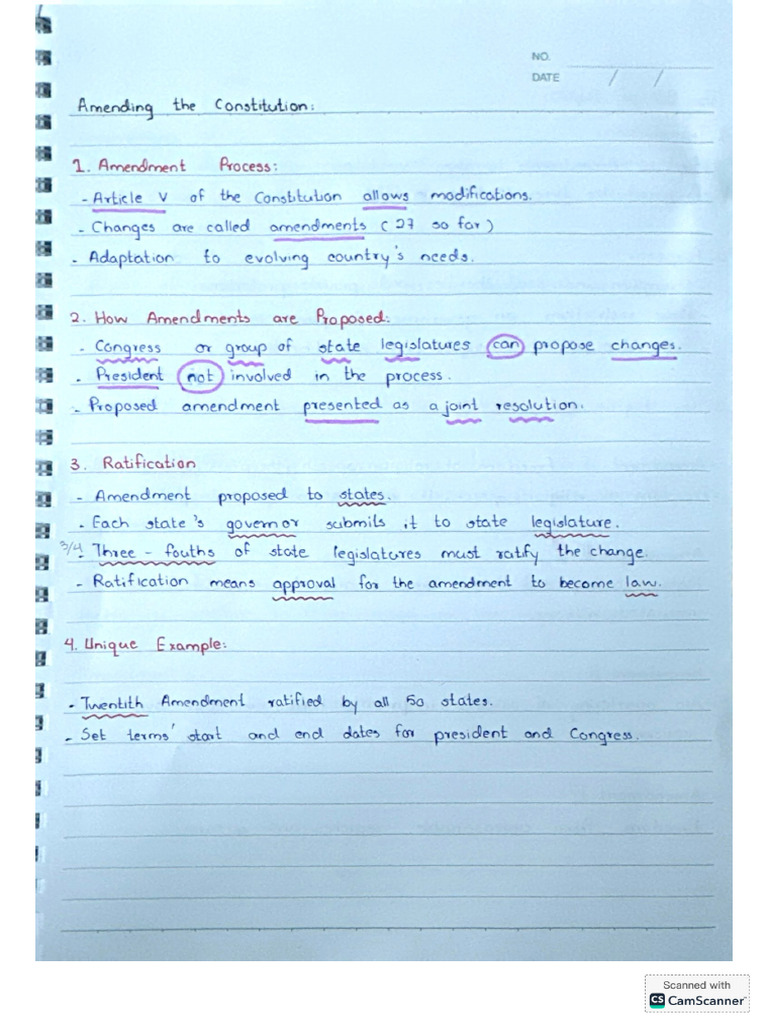 NO.
DATE / /
Amending the Constitution:
1. Amendment Process:
- Article V of the Constitution allows modifications.
- Changes are called amendments (27 so far)
- Adaptation to evolving country's needs.
2. How Amendments are Proposed:
- Congress or group of state legislatures can propose changes.
- President not involved in the process.
- Proposed amendment presented as a joint resolution.
3. Ratification
- Amendment proposed to states.
- Each state's governor submits it to state legislature.
3/4 - Three - fouths of state legislatures must ratify the change.
- Ratification means approval for the amendment to become law.
4. Unique Example:
- Twentith Amendment ratified by all 50 states.
- Set terms' start and end dates for president and Congress.
Scanned with
CS CamScanner